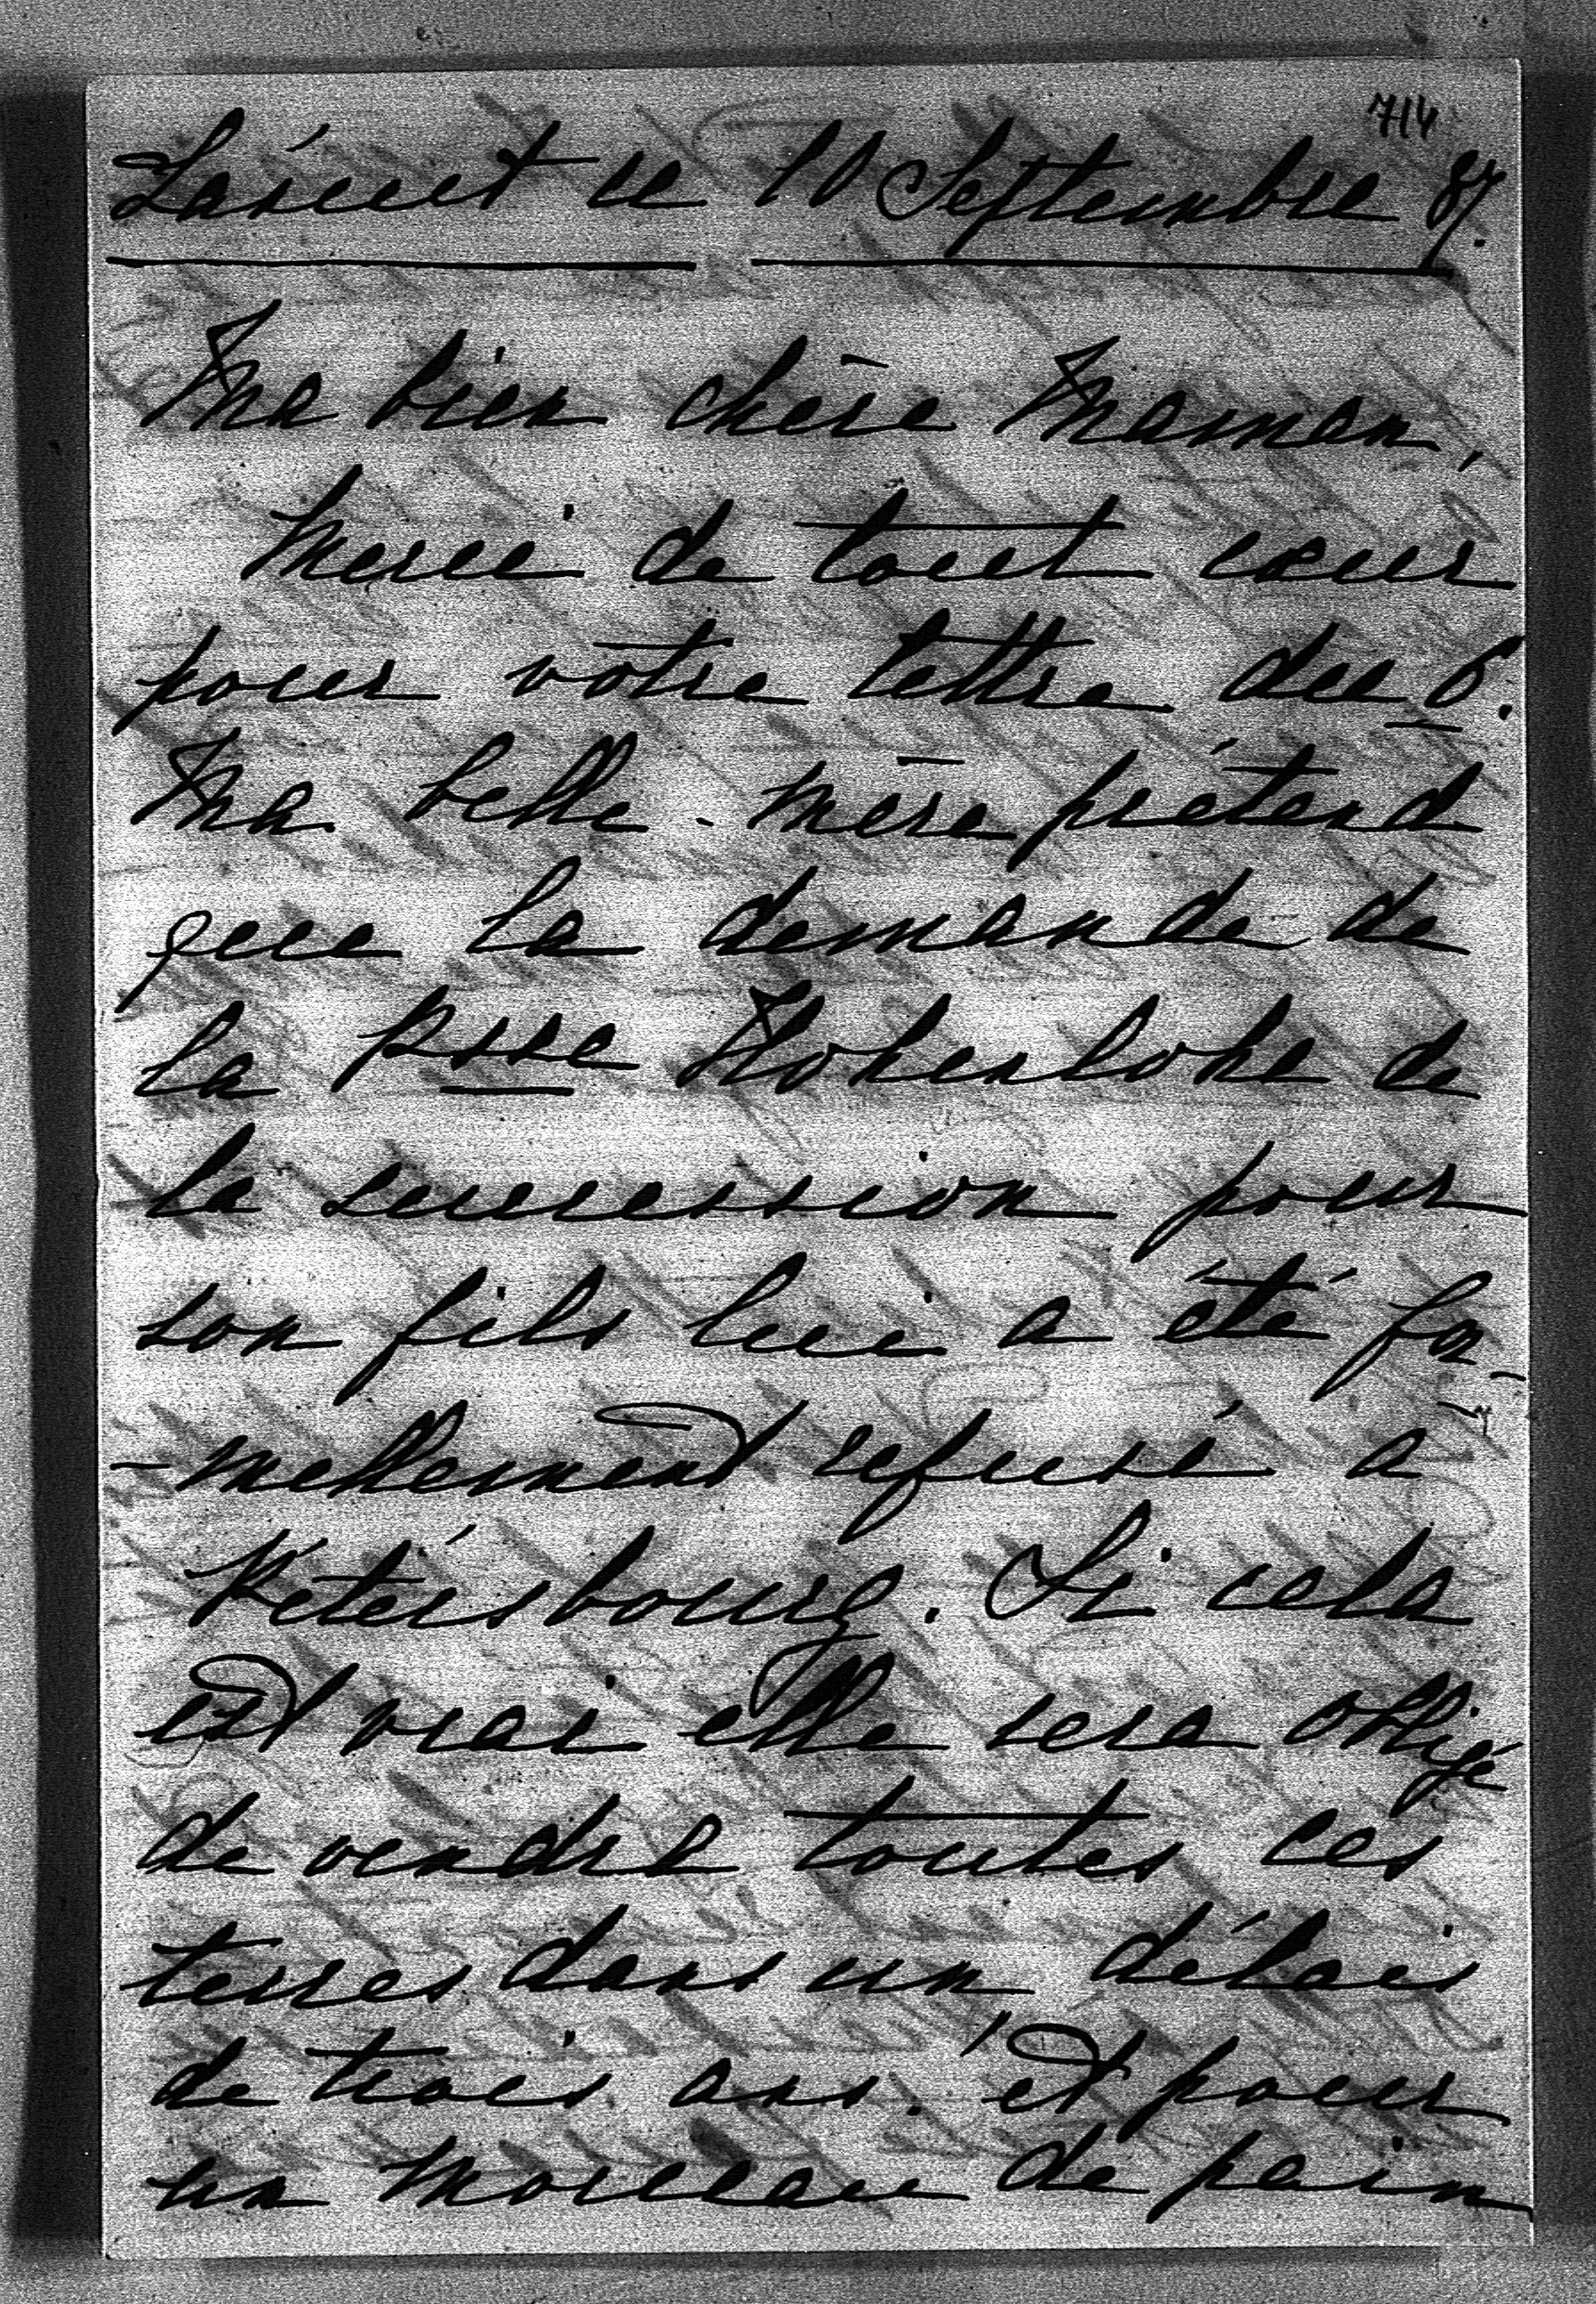 714
Lańcut le 10 Septembre 87.
Ma bien chère Maman,
Merci de tout cœur
pour votre lettre du 6.
Ma belle-mère prétend
que la demande de
la Psse Hohenlohe de
la succession pour
son fils lui a été for-
-mellement refusé a
Pétérsbourg. Si cela
est vrai elle sera obligé
de vendre toutes ces
terres dans un délais
de trois ans! et pour
un morceau de pain